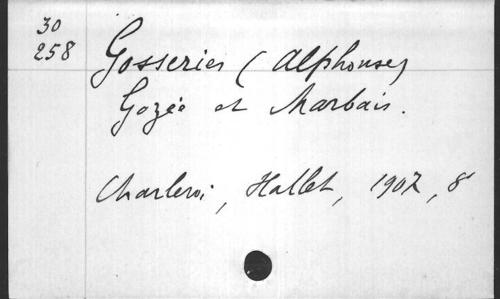 30
258
Gosseries (Alphonse)
Gozée et Marbais.
Charleroi, Hallet, 1907, 8°